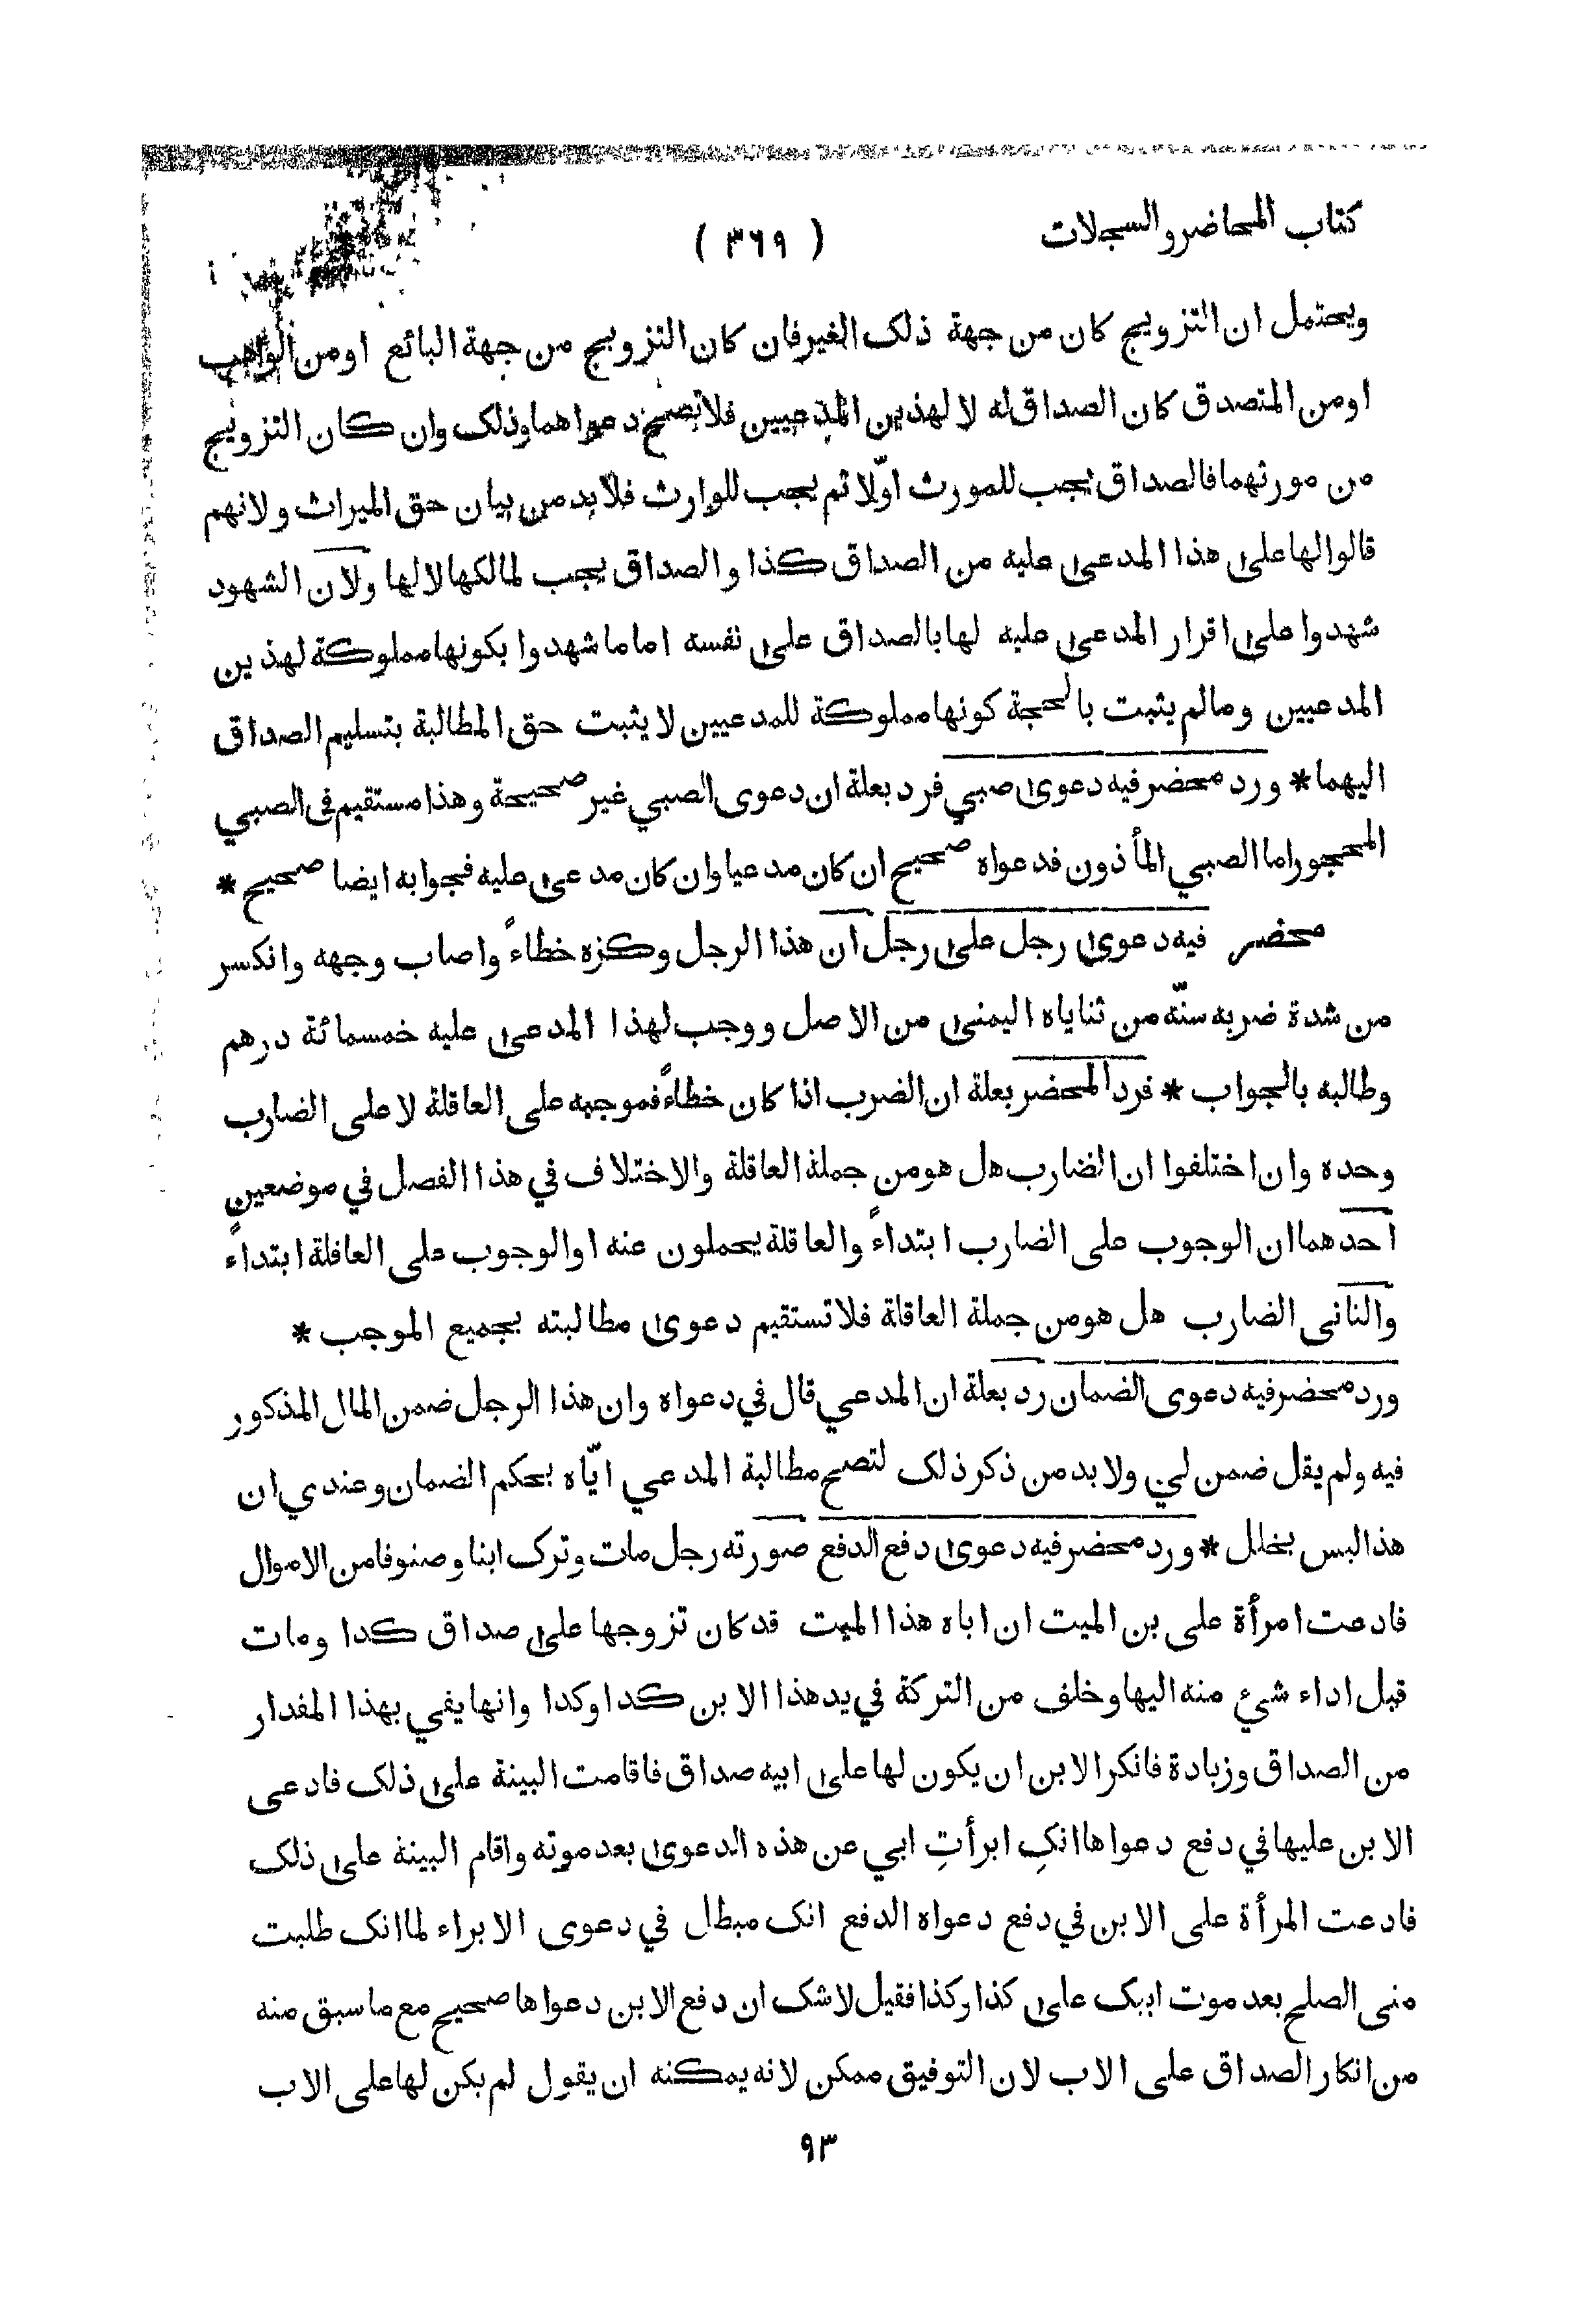 كتاب المحاضر والسجلات
( ٣٦٩ )
ويحتمل ان التزويج كان من جهة ذلك الغير فان كان التزويج من جهة البائع او من الواهب
او من المتصدق كان الصداق له لا لهذين المدعيين فلا تصح دعواهما وذلك وان كان التزويج
من مورثهما فالصداق يجب للمورث اوّلا ثم يجب للوارث فلا بد من بيان حق الميراث ولانهم
قالوا لها على هذا المدعى عليه من الصداق كذا والصداق يجب لمالكها لا لها ولان الشهود
شهدوا على اقرار المدعى عليه لها بالصداق على نفسه اما ما شهدوا بكونها مملوكة لهذين
المدعيين وما لم يثبت بالحجة كونها مملوكة للمدعيين لا يثبت حق المطالبة بتسليم الصداق
اليهما * ورد محضر فيه دعوى صبي فرد بعلة ان دعوى الصبي غير صحيحة وهذا مستقيم فى الصبي
المحجور اما الصبي المأذون فدعواه صحيح ان كان مدعيا وان كان مدعى عليه فجوابه ايضا صحيح *
محضر فيه دعوى رجل على رجل ان هذا الرجل وكزه خطاءً واصاب وجهه وانكسر
من شدة ضربه سنّه من ثناياه اليمنى من الاصل ووجب لهذا المدعى عليه خمسمائة درهم
وطالبه بالجواب * فرد المحضر بعلة ان الضرب اذا كان خطاءً فموجبه على العاقلة لا على الضارب
وحده وان اختلفوا ان الضارب هل هو من جملة العاقلة والاختلاف في هذا الفصل في موضعين
احدهما ان الوجوب على الضارب ابتداءً والعاقلة يحملون عنه او الوجوب على العاقلة ابتداءً
والثانى الضارب هل هو من جملة العاقلة فلا تستقيم دعوى مطالبته بجميع الموجب *
ورد محضر فيه دعوى الضمان رد بعلة ان المدعي قال في دعواه وان هذا الرجل ضمن المال المذكور
فيه ولم يقل ضمن لي ولا بد من ذكر ذلك لتصح مطالبة المدعي ايّاه بحكم الضمان وعندي ان
هذا ليس بخلل * ورد محضر فيه دعوى دفع الدفع صورته رجل مات وترك ابنا وصنوفا من الاموال
فادعت امرأة على بن الميت ان اباه هذا الميت قد كان تزوجها على صداق كدا ومات
قبل اداء شيء منه اليها وخلف من التركة في يد هذا الابن كدا وكدا وانها يفي بهذا المقدار
من الصداق وزيادة فانكر الابن ان يكون لها على ابيه صداق فاقامت البينة على ذلك فادعى
الابن عليها في دفع دعواها انكِ ابرأتِ ابي عن هذه الدعوى بعد موته واقام البينة على ذلك
فادعت المرأة على الابن في دفع دعواه الدفع انك مبطل في دعوى الابراء لما انك طلبت
منى الصلح بعد موت ابيك على كذا وكذا فقيل لا شك ان دفع الابن دعواها صحيح مع ما سبق منه
من انكار الصداق على الاب لان التوفيق ممكن لانه يمكنه ان يقول لم يكن لها على الاب
٩٣